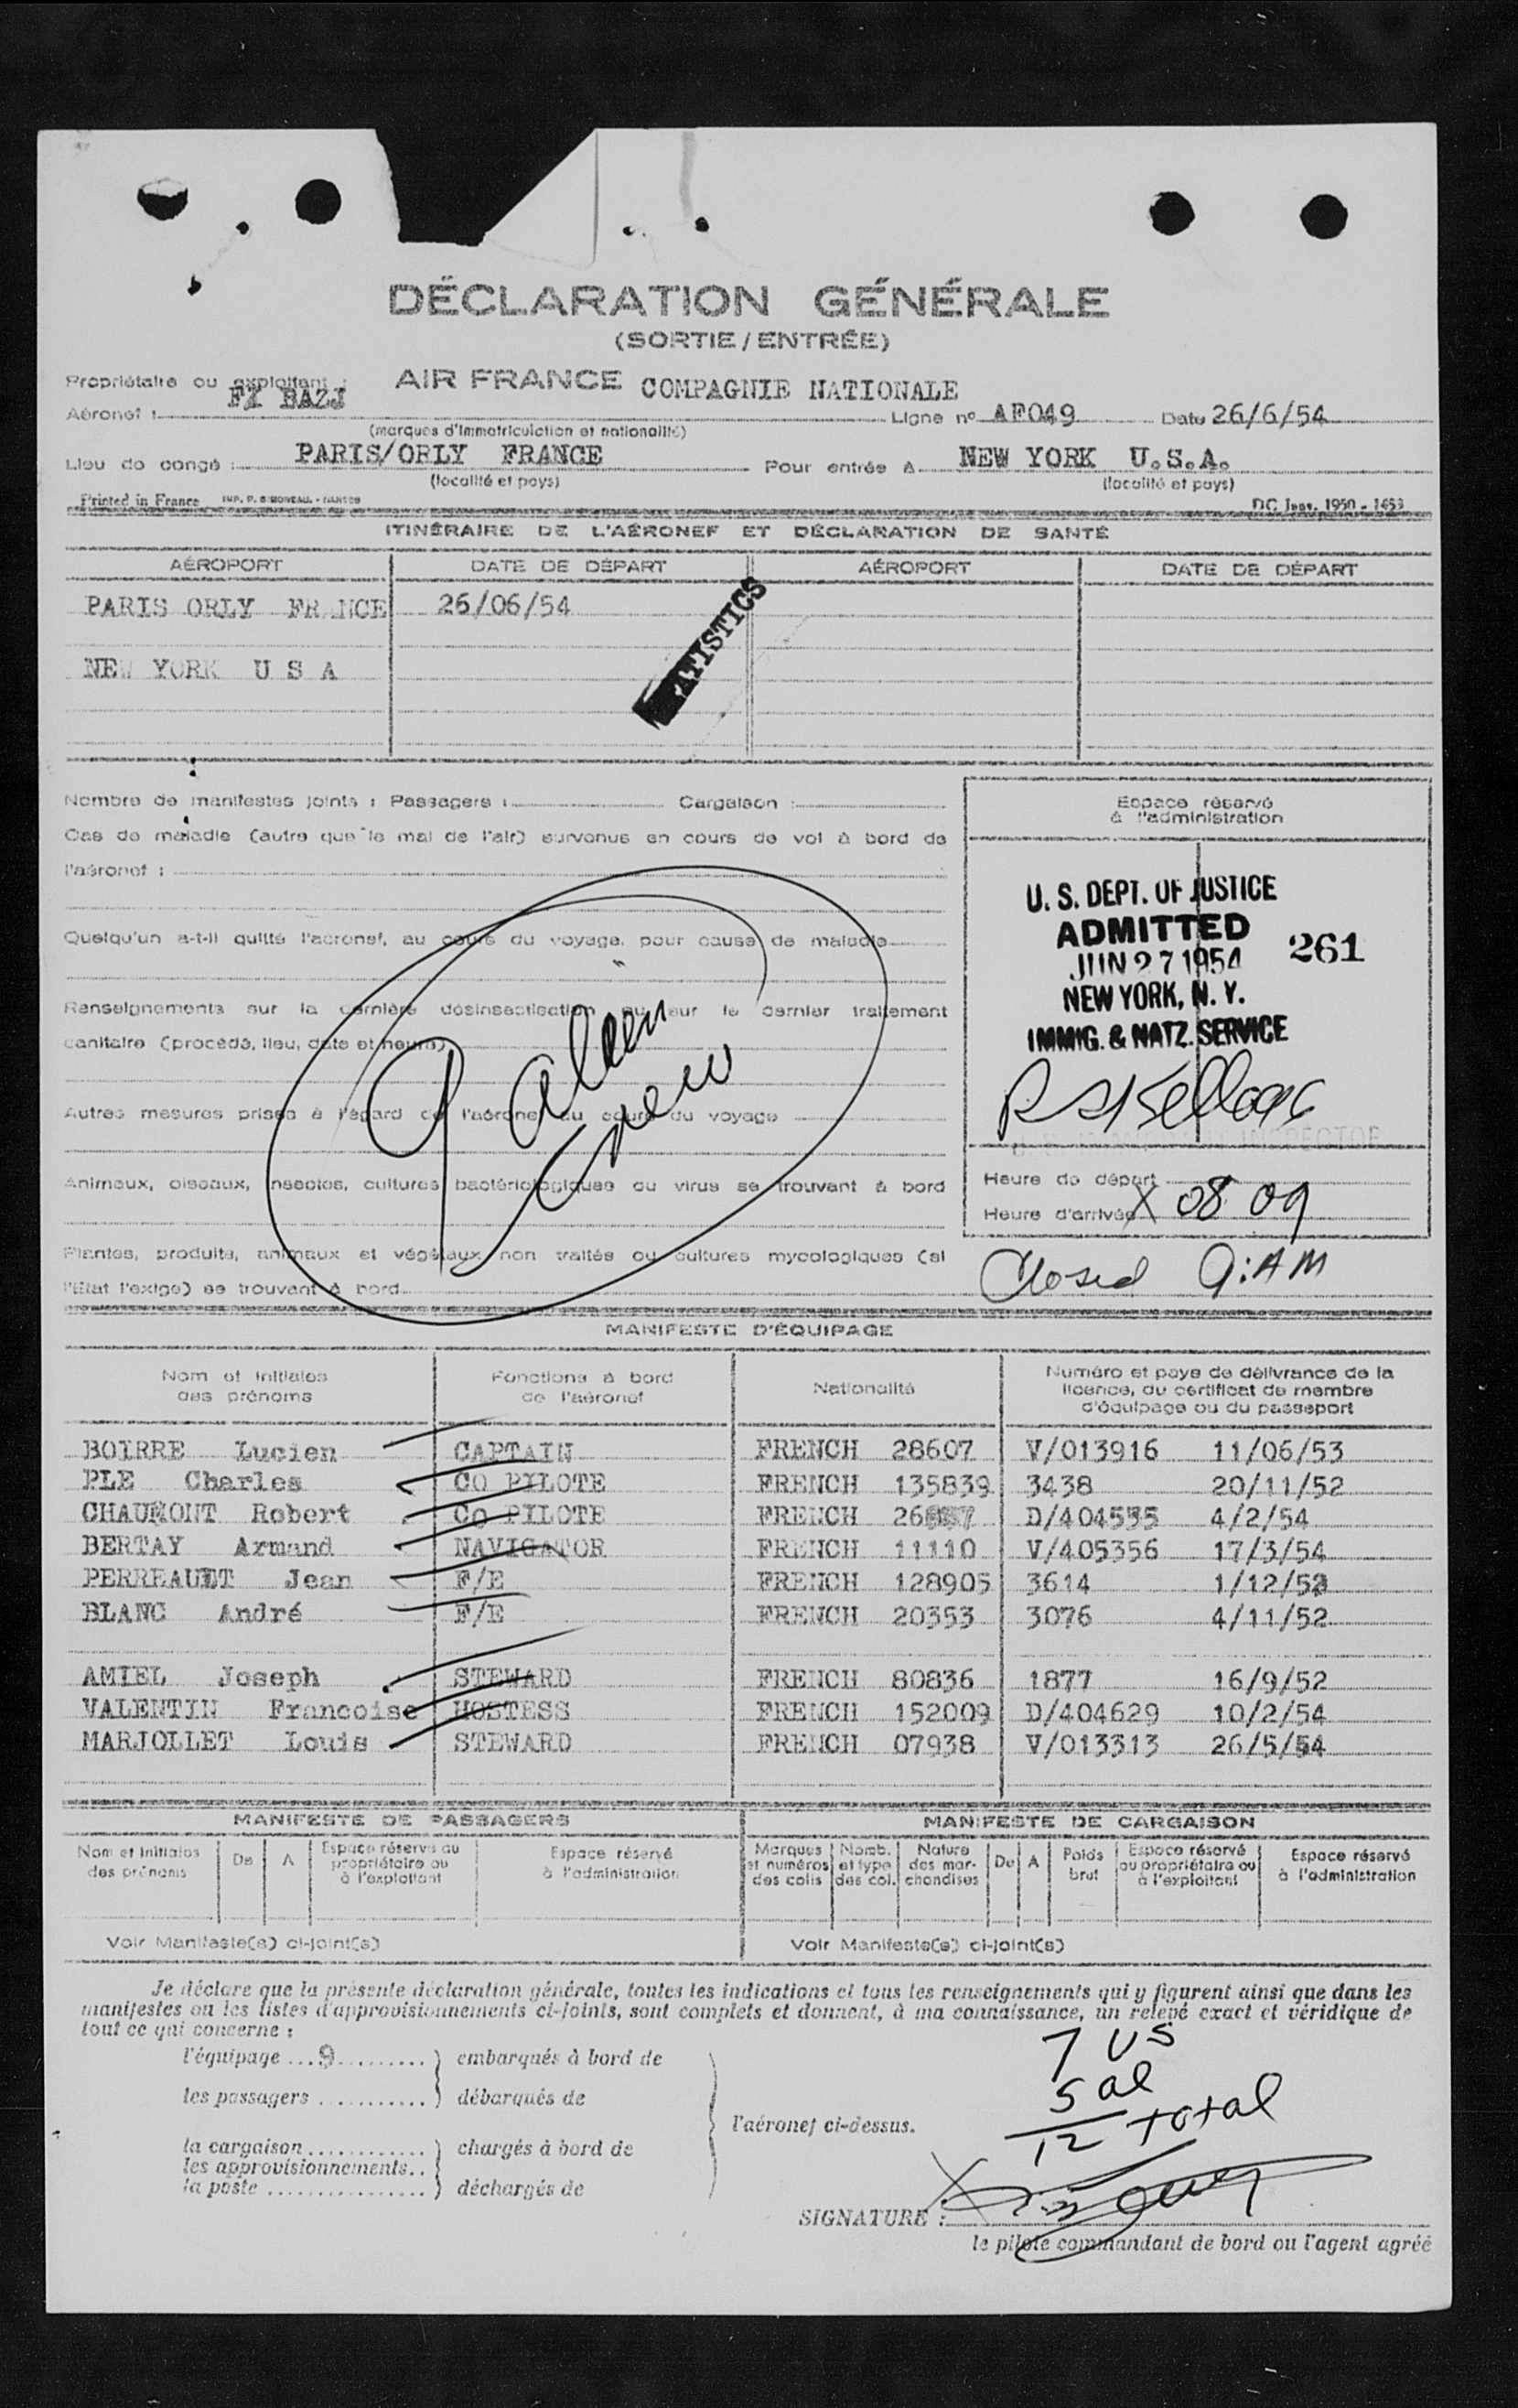 DÉCLARATION GÉNÉRALE
(SORTIE / ENTRÉE)
Propriétaire ou exploitant : AIR FRANCE COMPAGNIE NATIONALE
Aéronef : FX BAZJ Ligne nº AF049 Date 26/6/54
(marques d'immatriculation et nationalité)
Lieu de congé : PARIS/ORLY FRANCE Pour entrée à NEW YORK U.S.A.
(localité et pays) (localité et pays)
Printed in France DC Janv. 1950 - 1653
ITINÉRAIRE DE L'AÉRONEF ET DÉCLARATION DE SANTÉ
AÉROPORT DATE DE DÉPART AÉROPORT DATE DE DÉPART
PARIS ORLY FR NCE 26/06/54
ATISTICS
NEW YORK U S A
Nombre de manifestes joints : Passagers : Cargaison :
Cas de maladie (autre que le mal de l'air) survenus en cours de vol à bord de
l'aéronef :
Quelqu'un a-t-il quitté l'aéronef, au cours du voyage, pour cause de maladie
Renseignements sur la dernière désinsectisation ou sur le dernier traitement
sanitaire (procédé, lieu, date et heure)
Autres mesures prises à l'égard de l'aéronef au cours du voyage
Animaux, oiseaux, insectes, cultures bactériologiques ou virus se trouvant à bord
Plantes, produits, animaux et végétaux non traités ou cultures mycologiques (si
l'Etat l'exige) se trouvant à bord
9 alien
crew
Espace réservé
à l'administration
U. S. DEPT. OF JUSTICE
ADMITTED
JUN 27 1954 261
NEW YORK, N. Y.
IMMIG. & NATZ. SERVICE
R S Kellogg
INSPECTOR
Heure de départ
Heure d'arrivée X 08 09
Closed 9:AM
MANIFESTE D'ÉQUIPAGE
Nom et initiales des prénoms Fonctions à bord de l'aéronef Nationalité Numéro et pays de délivrance de la licence, du certificat de membre d'équipage ou du passeport
BOIRRE Lucien CAPTAIN FRENCH 28607 V/013916 11/06/53
PLE Charles CO PILOTE FRENCH 135839 3438 20/11/52
CHAUMONT Robert CO PILOTE FRENCH D/404535 4/2/54
BERTAY Armand NAVIGATOR FRENCH 11110 V/405356 17/3/54
PERREAUDT Jean F/E FRENCH 128905 3614 1/12/52
BLANC André F/E FRENCH 20353 3076 4/11/52
AMIEL Joseph STEWARD FRENCH 80836 1877 16/9/52
VALENTIN Francoise HOSTESS FRENCH 152009 D/404629 10/2/54
MARJOLLET Louis STEWARD FRENCH 07938 V/013313 26/5/54
MANIFESTE DE PASSAGERS MANIFESTE DE CARGAISON
Nom et initiales des prénoms De A Espace réservé au propriétaire ou à l'exploitant Espace réservé à l'administration Marques et numéros des colis Nomb. et type des col. Nature des marchandises De A Poids brut Espace réservé au propriétaire ou à l'exploitant Espace réservé à l'administration
Voir Manifeste(s) ci-joint(s) Voir Manifeste(s) ci-joint(s)
Je déclare que la présente déclaration générale, toutes les indications et tous les renseignements qui y figurent ainsi que dans les
manifestes ou les listes d'approvisionnements ci-joints, sont complets et donnent, à ma connaissance, un relevé exact et véridique de
tout ce qui concerne :
l'équipage ...9......... embarqués à bord de
les passagers ........... débarqués de
l'aéronef ci-dessus.
la cargaison ............ chargés à bord de
les approvisionnements..
la poste ................ déchargés de
7 US
5 al
12 total
SIGNATURE : X
le pilote commandant de bord ou l'agent agréé